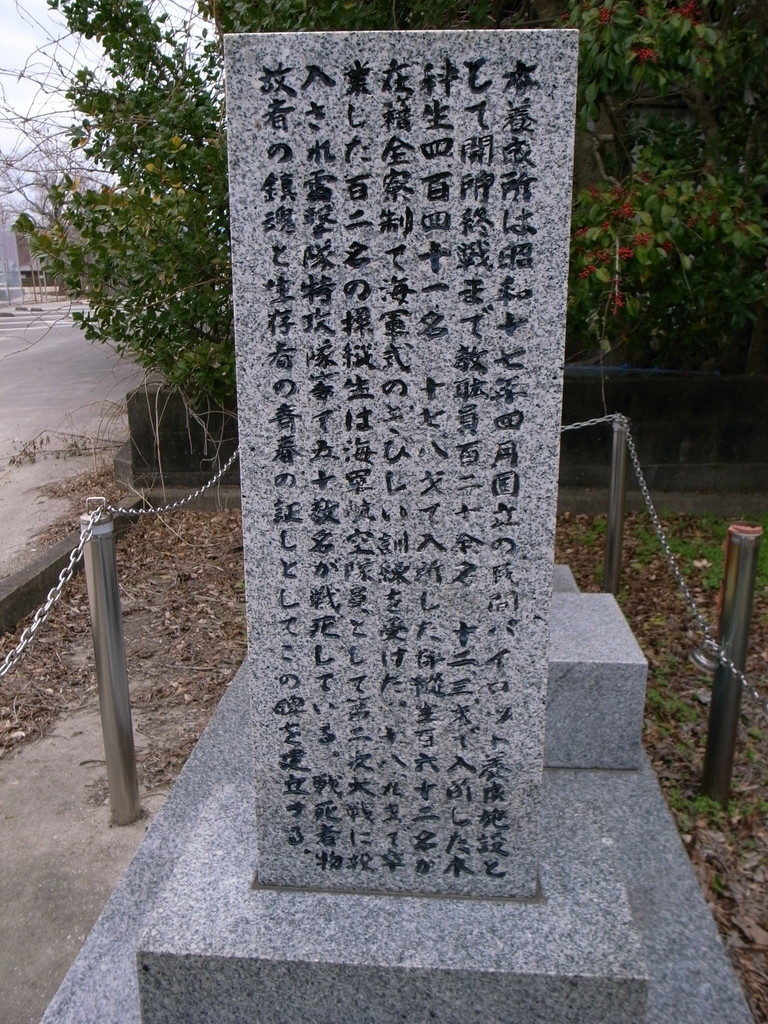 本養成所は昭和十七年四月国立の民間パイロット養成施設と
して開所終戦まで教職員百二十余名 十二三才で入所した本
科生四百四十一名 十七八才で入所した操縦生百六十二名が
在籍全寮制で海軍式のきびしい訓練を受けた。十八九才で卒
業した百二名の操縦生は海軍航空隊員として第二次大戦に投
入され雷撃隊特攻隊等で五十数名が戦死している。戦死者物
故者の鎮魂と生存者の青春の証しとしてこの碑を建立する。